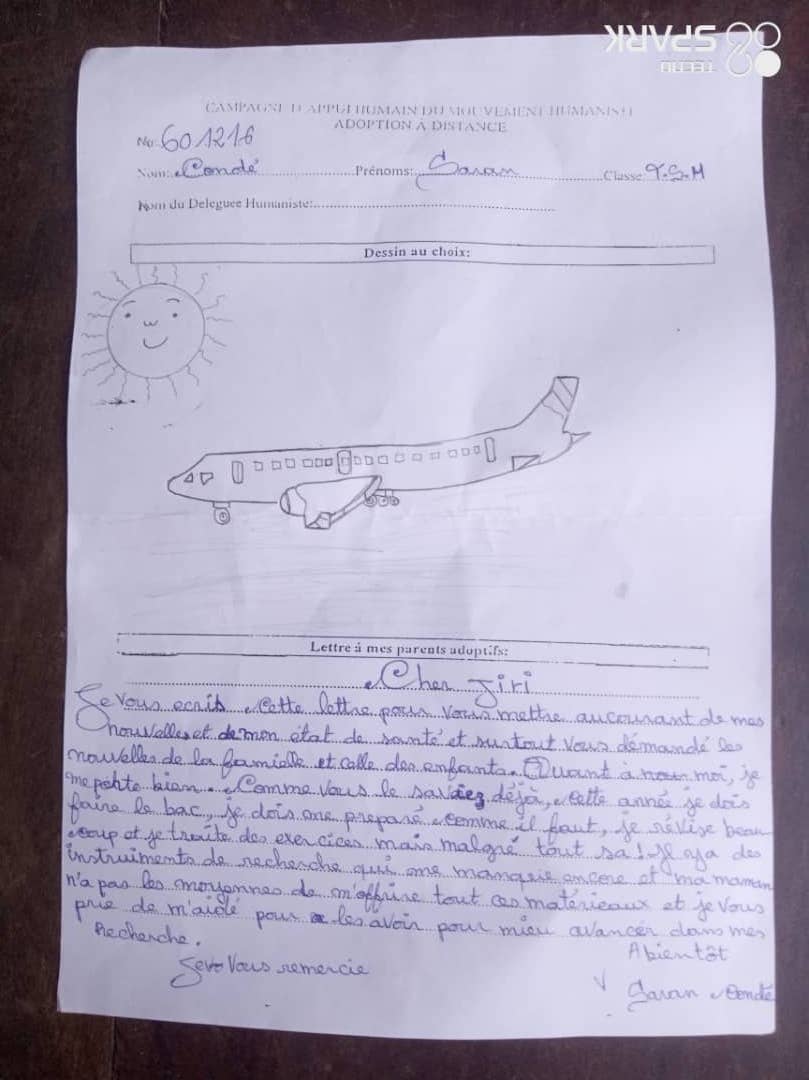 SPARK
TECNO
CAMPAGNE D'APPUI HUMAIN DU MOUVEMENT HUMANISTE
ADOPTION A DISTANCE
No: 601216
Nom: Condé Prénoms: Saran Classe: T.S.M
Nom du Deleguee Humaniste:
Dessin au choix:
Lettre à mes parents adoptifs:
Cher Jiri
Je vous ecris cette lettre pour vous mettre aucourant de mes
nouvelles et de mon état de santé et surtout vous démandé les
nouvelles de la famielle et calle des enfants. Quant à moi, je
me porte bien. Comme vous le saviez déjà, cette année je dois
faire le bac, je dois me preparé comme il faut, je révise beau
coup et je traite des exercices mais malgré tout sa! Il y a des
instruiments de recherche qui me manque encore et ma maman
n'a pas les moyennes de m'offrire tout ces matérieaux et je vous
prie de m'aidé pour les avoir pour mieu avancér dans mes
Recherche.
Abientôt
Je vous remercie
Saran Condé